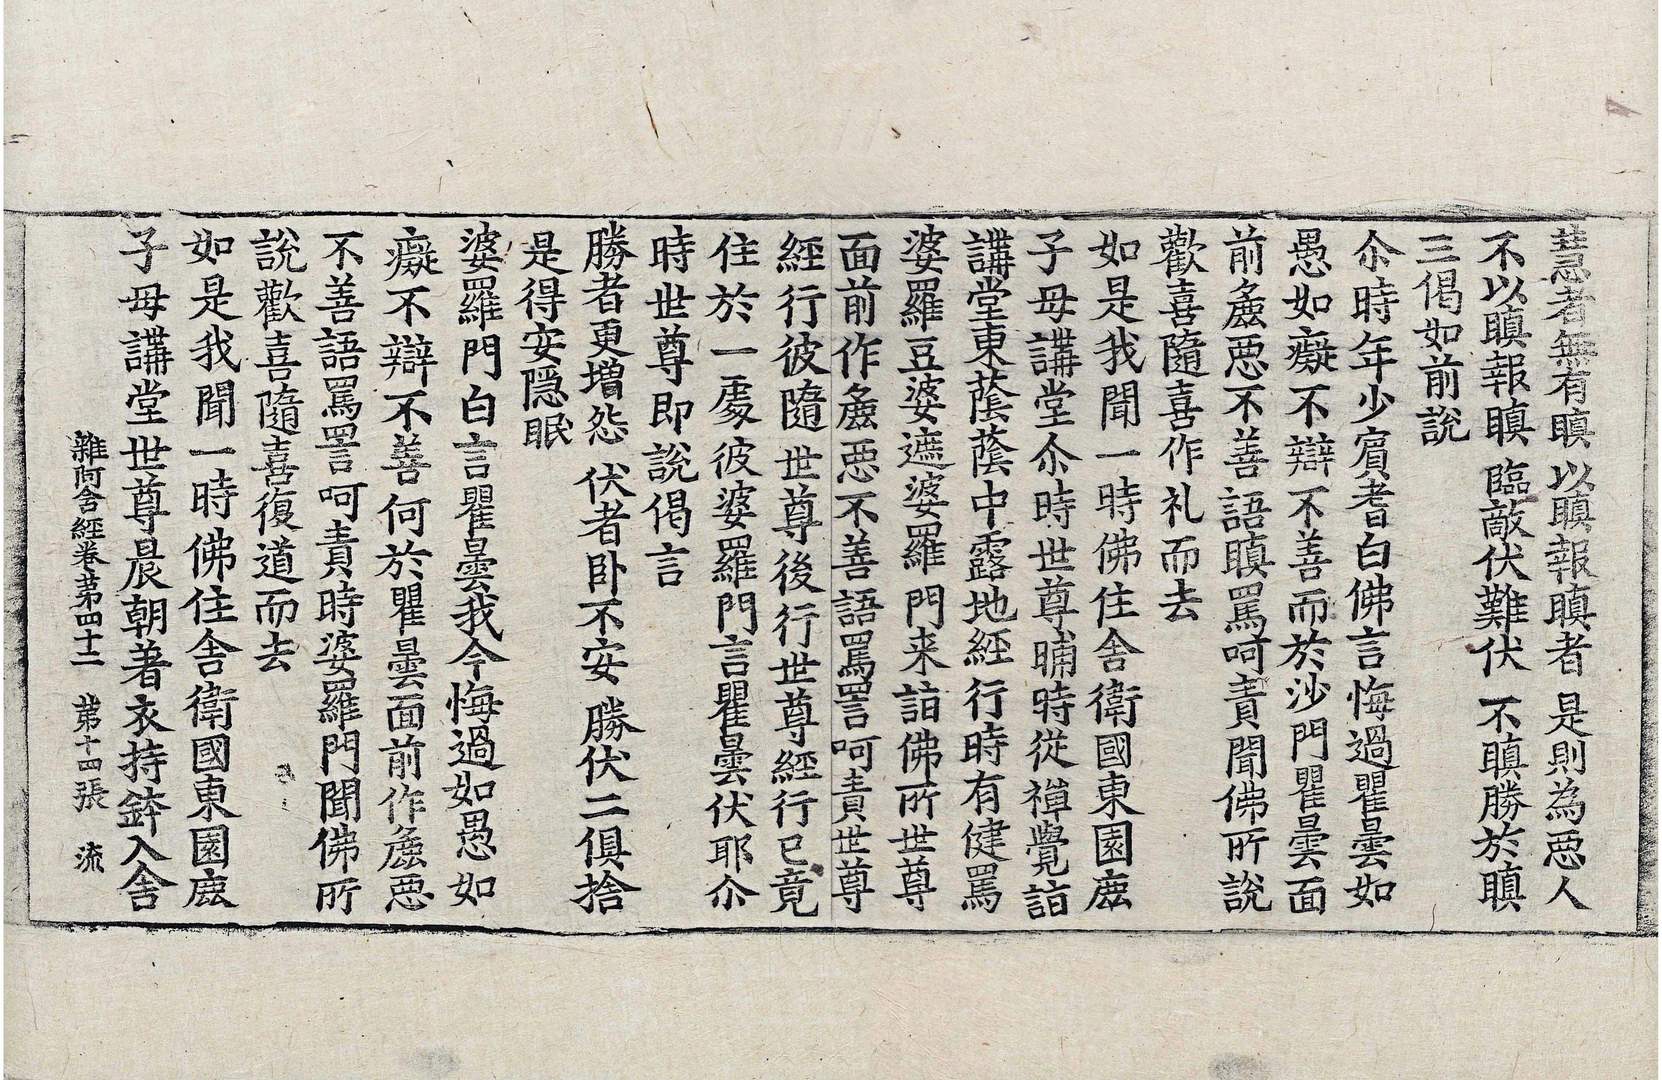 慧者無有瞋 以瞋報瞋者 是則為悪人
不以瞋報瞋 臨敵伏難伏 不瞋勝於瞋
三偈如前說
尒時年少賔耆白佛言悔過瞿曇如
愚如癡不辯不善而於沙門瞿曇面
前麁悪不善語瞋罵呵責聞佛所說
歡喜隨喜作礼而去
如是我聞一時佛住舍衛國東園鹿
子母講堂尒時世尊晡時從禪覺詣
講堂東蔭蔭中露地經行時有健罵
婆羅豆婆遮婆羅門来詣佛所世尊
面前作麁悪不善語罵詈呵責世尊
經行彼隨世尊後行世尊經行已竟
住於一處彼婆羅門言瞿曇伏耶尒
時世尊即說偈言
勝者更增怨 伏者卧不安 勝伏二俱捨
是得安隱眠
婆羅門白言瞿曇我今悔過如愚如
癡不辯不善何於瞿曇面前作麁悪
不善語罵詈呵責時婆羅門聞佛所
說歡喜隨喜復道而去
如是我聞一時佛住舍衛國東園鹿
子母講堂世尊晨朝著衣持鉢入舍
雜阿含經卷第四十二 第十四張 流